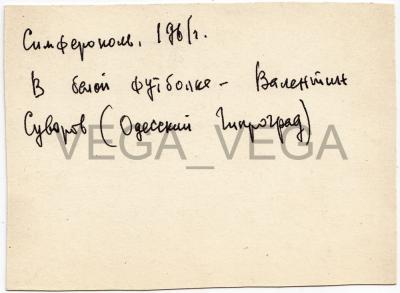 Симферополь. 1961г.
В белой футболке – Валентин
Суворов (Одесский Гипроград)
VEGA_VEGA